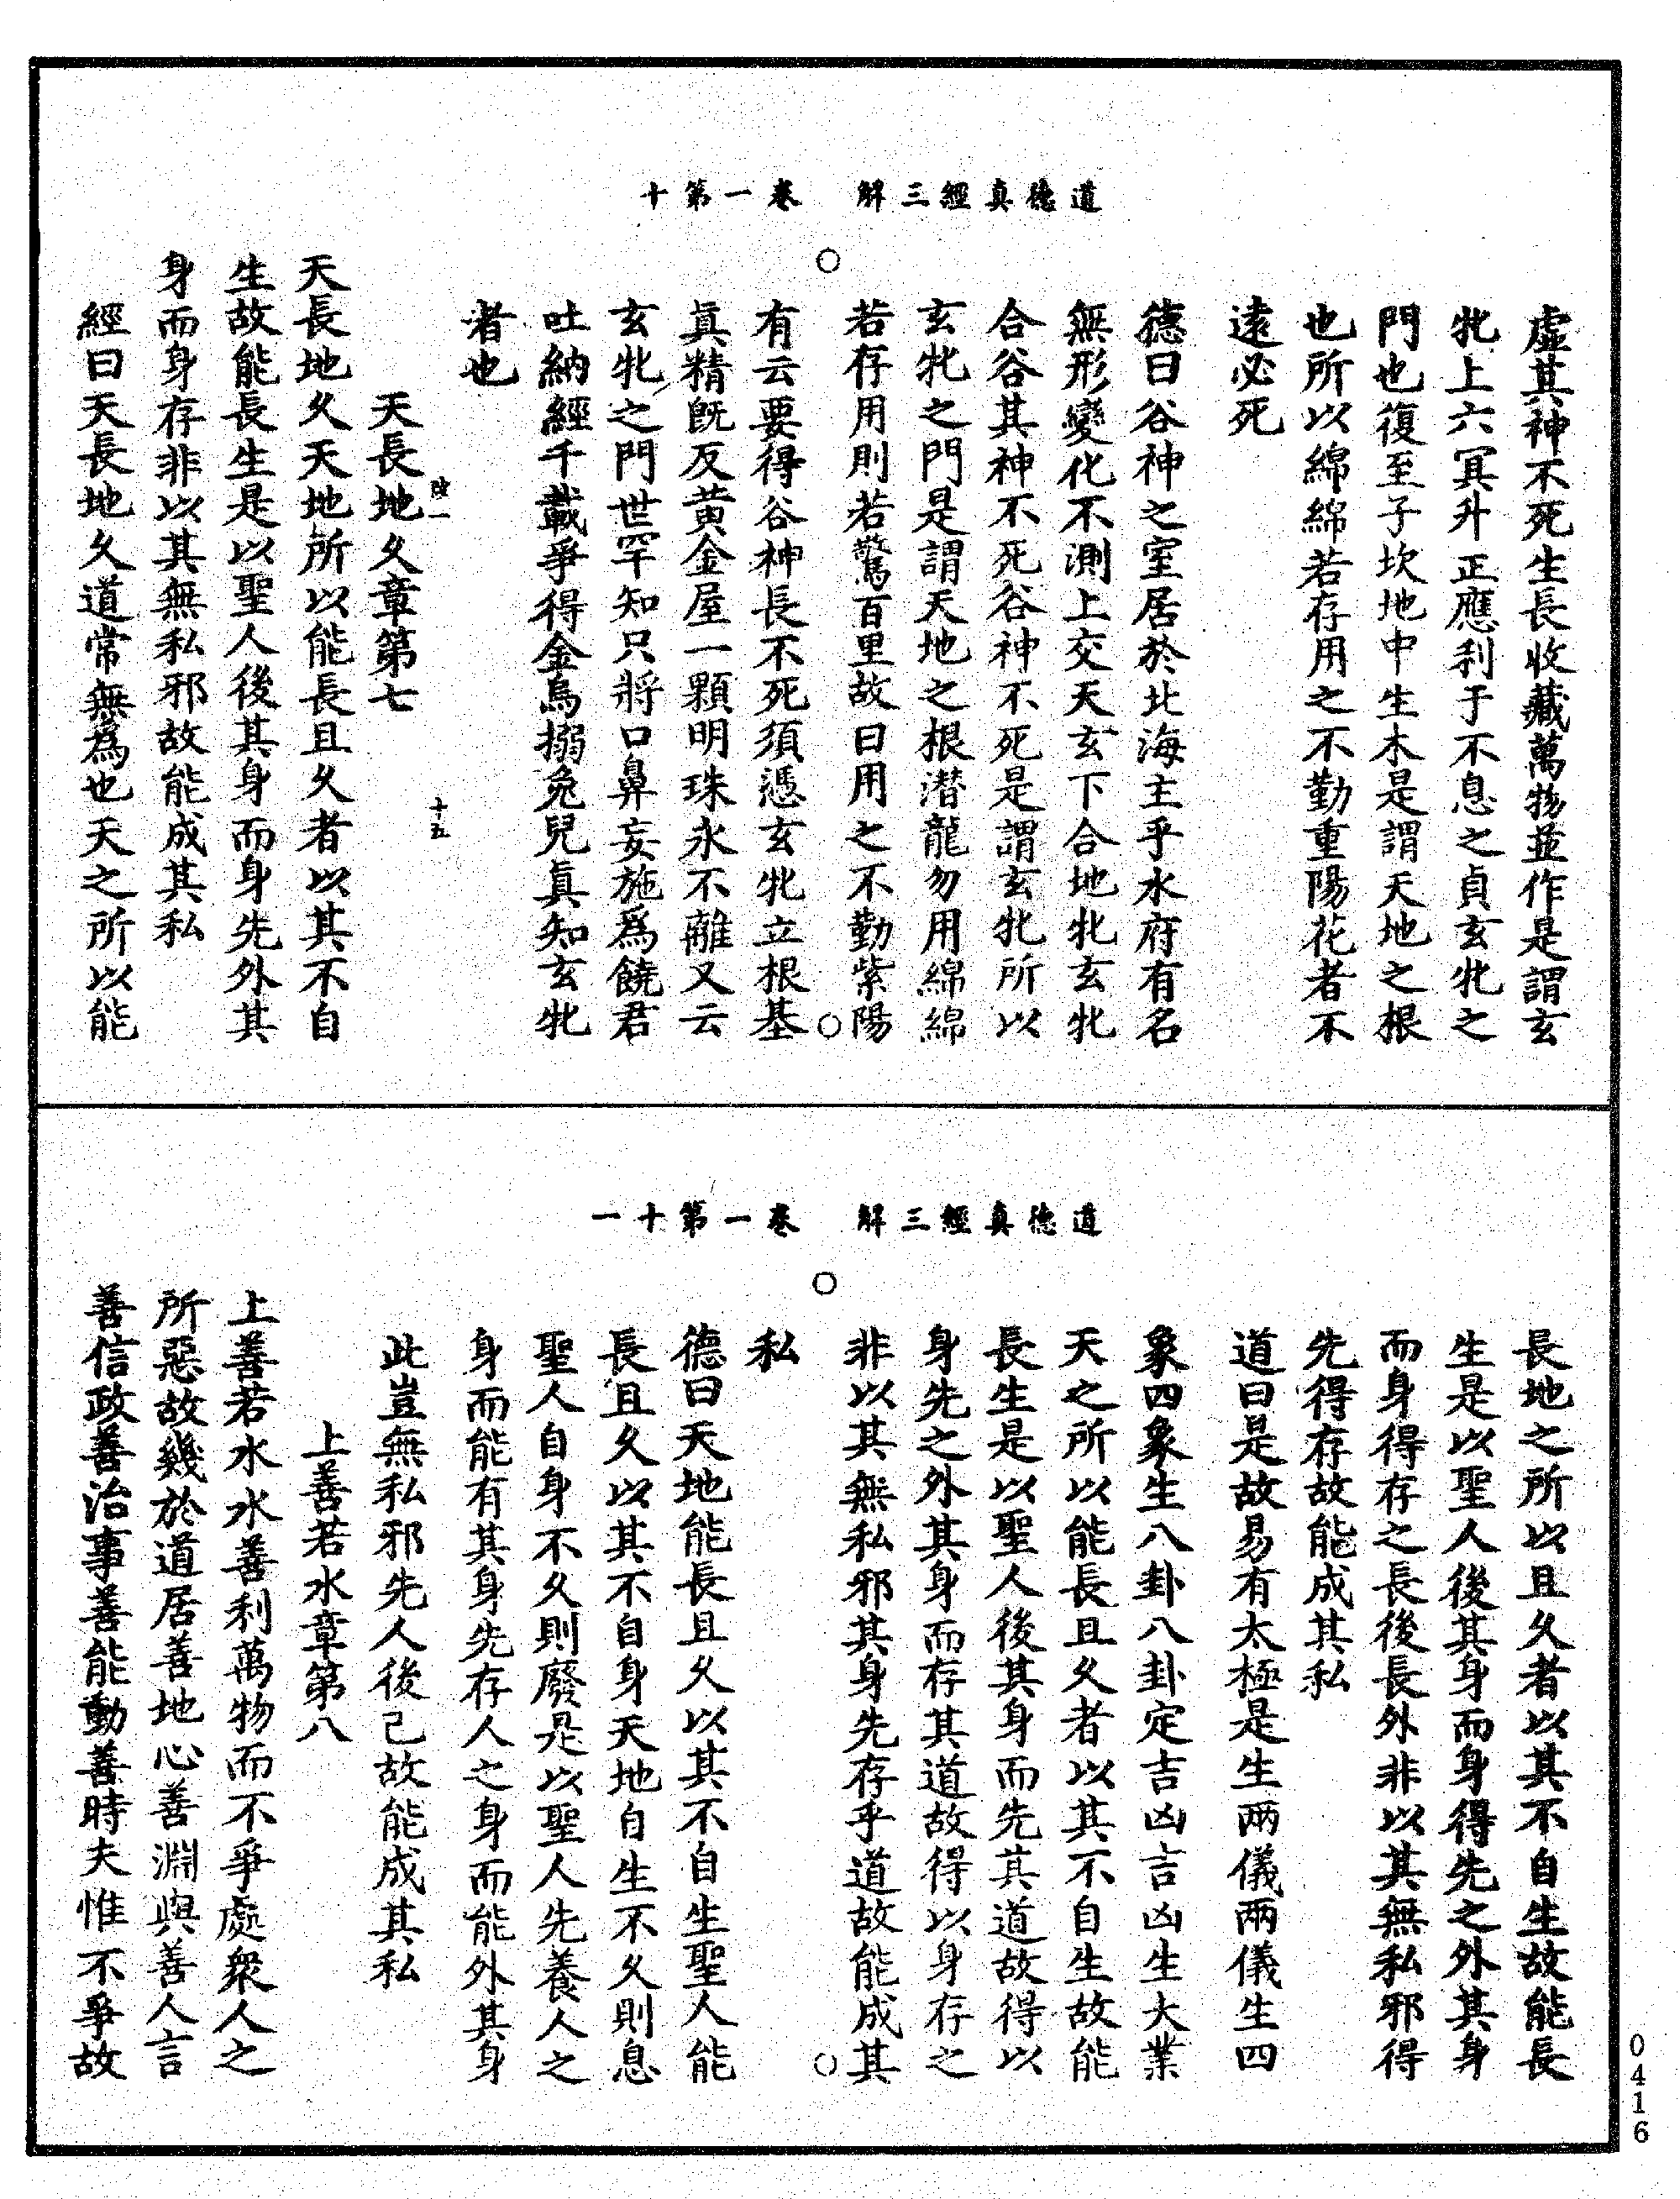 道德真經三解　卷一第十
虛其神不死生長收藏萬物並作是謂玄
牝上六冥升正應利于不息之貞玄牝之
門也復至子坎地中生木是謂天地之根
也所以綿綿若存用之不勤重陽花者不
遠必死
德曰谷神之室居於北海主乎水府有名
無形變化不測上交天玄下合地牝玄牝
合谷其神不死谷神不死是謂玄牝所以
玄牝之門是謂天地之根潜龍勿用綿綿
若存用則若驚百里故曰用之不勤紫陽
有云要得谷神長不死須憑玄牝立根基
真精旣反黄金屋一顆明珠永不離又云
玄牝之門世罕知只將口鼻妄施爲饒君
吐納經千載爭得金烏搦兔兒真知玄牝
者也
陸一　十五
天長地久章第七
天長地久天地所以能長且久者以其不自
生故能長生是以聖人後其身而身先外其
身而身存非以其無私邪故能成其私
經曰天長地久道常無爲也天之所以能
道德真經三解　卷一第十一
長地之所以且久者以其不自生故能長
生是以聖人後其身而身得先之外其身
而身得存之長後長外非以其無私邪得
先得存故能成其私
道曰是故易有太極是生兩儀兩儀生四
象四象生八卦八卦定吉凶吉凶生大業
天之所以能長且久者以其不自生故能
長生是以聖人後其身而先其道故得以
身先之外其身而存其道故得以身存之
非以其無私邪其身先存乎道故能成其
私
德曰天地能長且久以其不自生聖人能
長且久以其不自身天地自生不久則息
聖人自身不久則廢是以聖人先養人之
身而能有其身先存人之身而能外其身
此豈無私邪先人後己故能成其私
上善若水章第八
上善若水水善利萬物而不爭處衆人之
所惡故幾於道居善地心善淵與善人言
善信政善治事善能動善時夫惟不爭故
0416